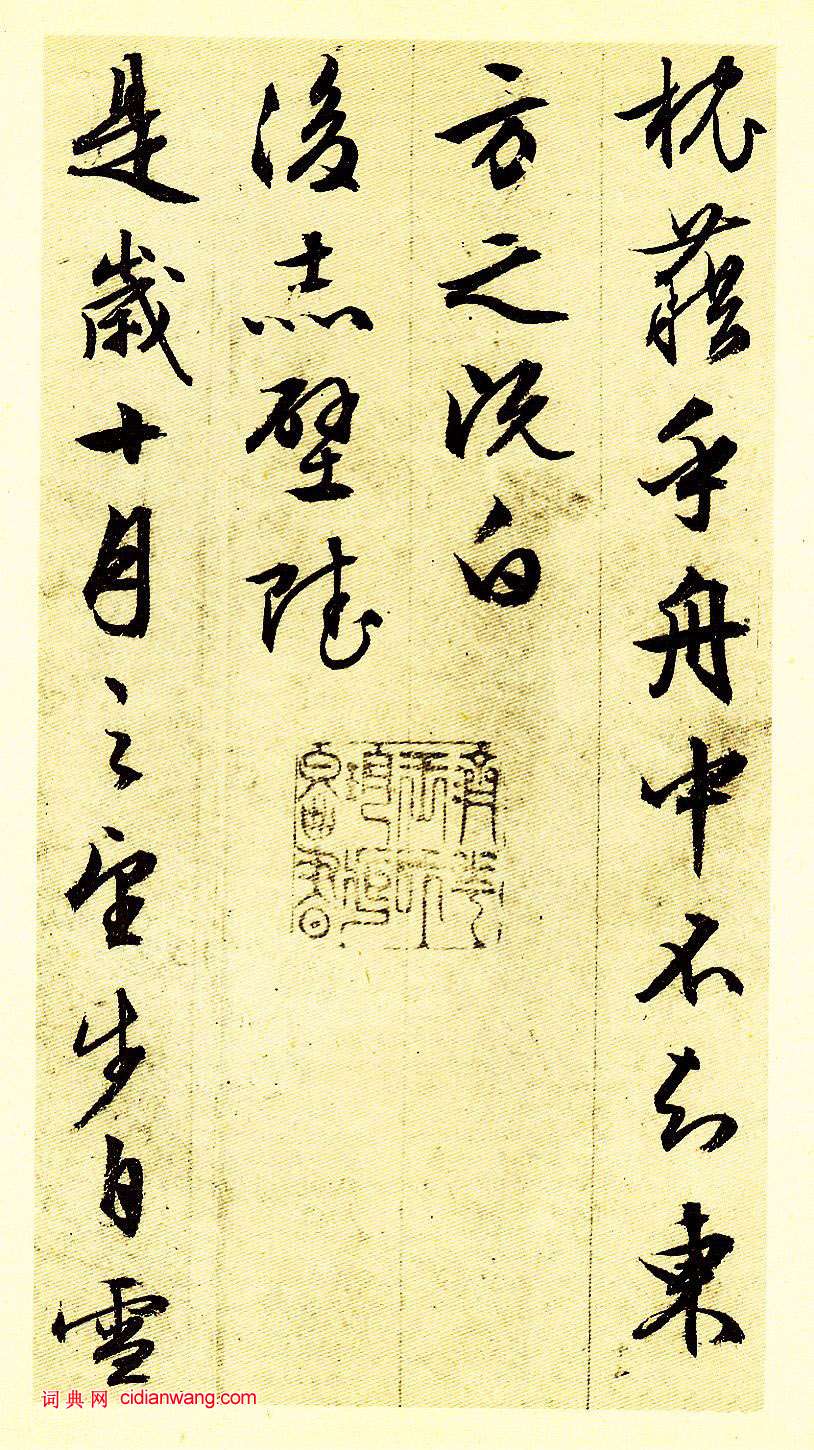 枕藉乎舟中不知東
方之既白
後赤壁賦
是歲十月之望步自雪
词典网 cidianwang.com